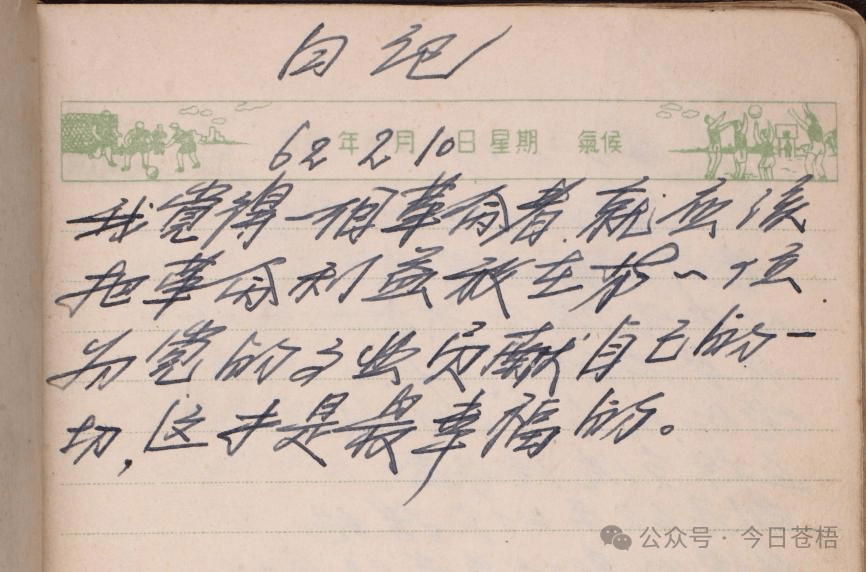 日记
62年2月10日星期 氣候
我觉得一個革命者就应该
把革命利益放在第一位
为党的事业贡献自己的一
切,这才是最幸福的。
公众号·今日苍梧